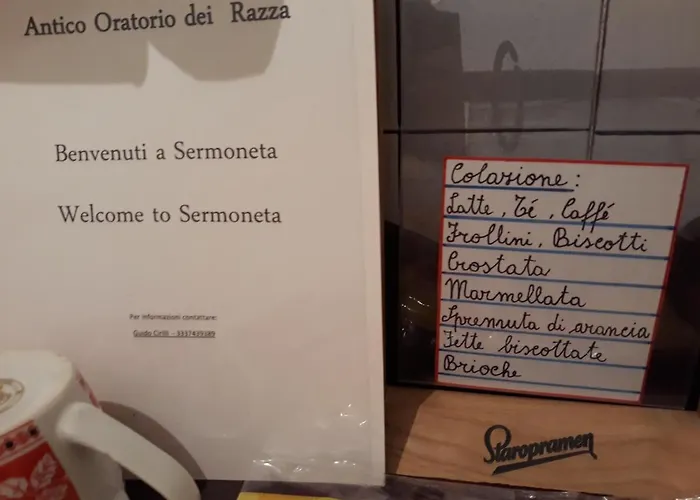 Antico Oratorio dei Razza
Benvenuti a Sermoneta
Welcome to Sermoneta
Per informazioni contattare:
Guido Cirilli - 3337439389
Colazione:
Latte, Té, Caffé
Frollini, Biscotti
Crostata
Marmellata
Spremuta di arancia
Fette biscottate
Brioche
Staropramen